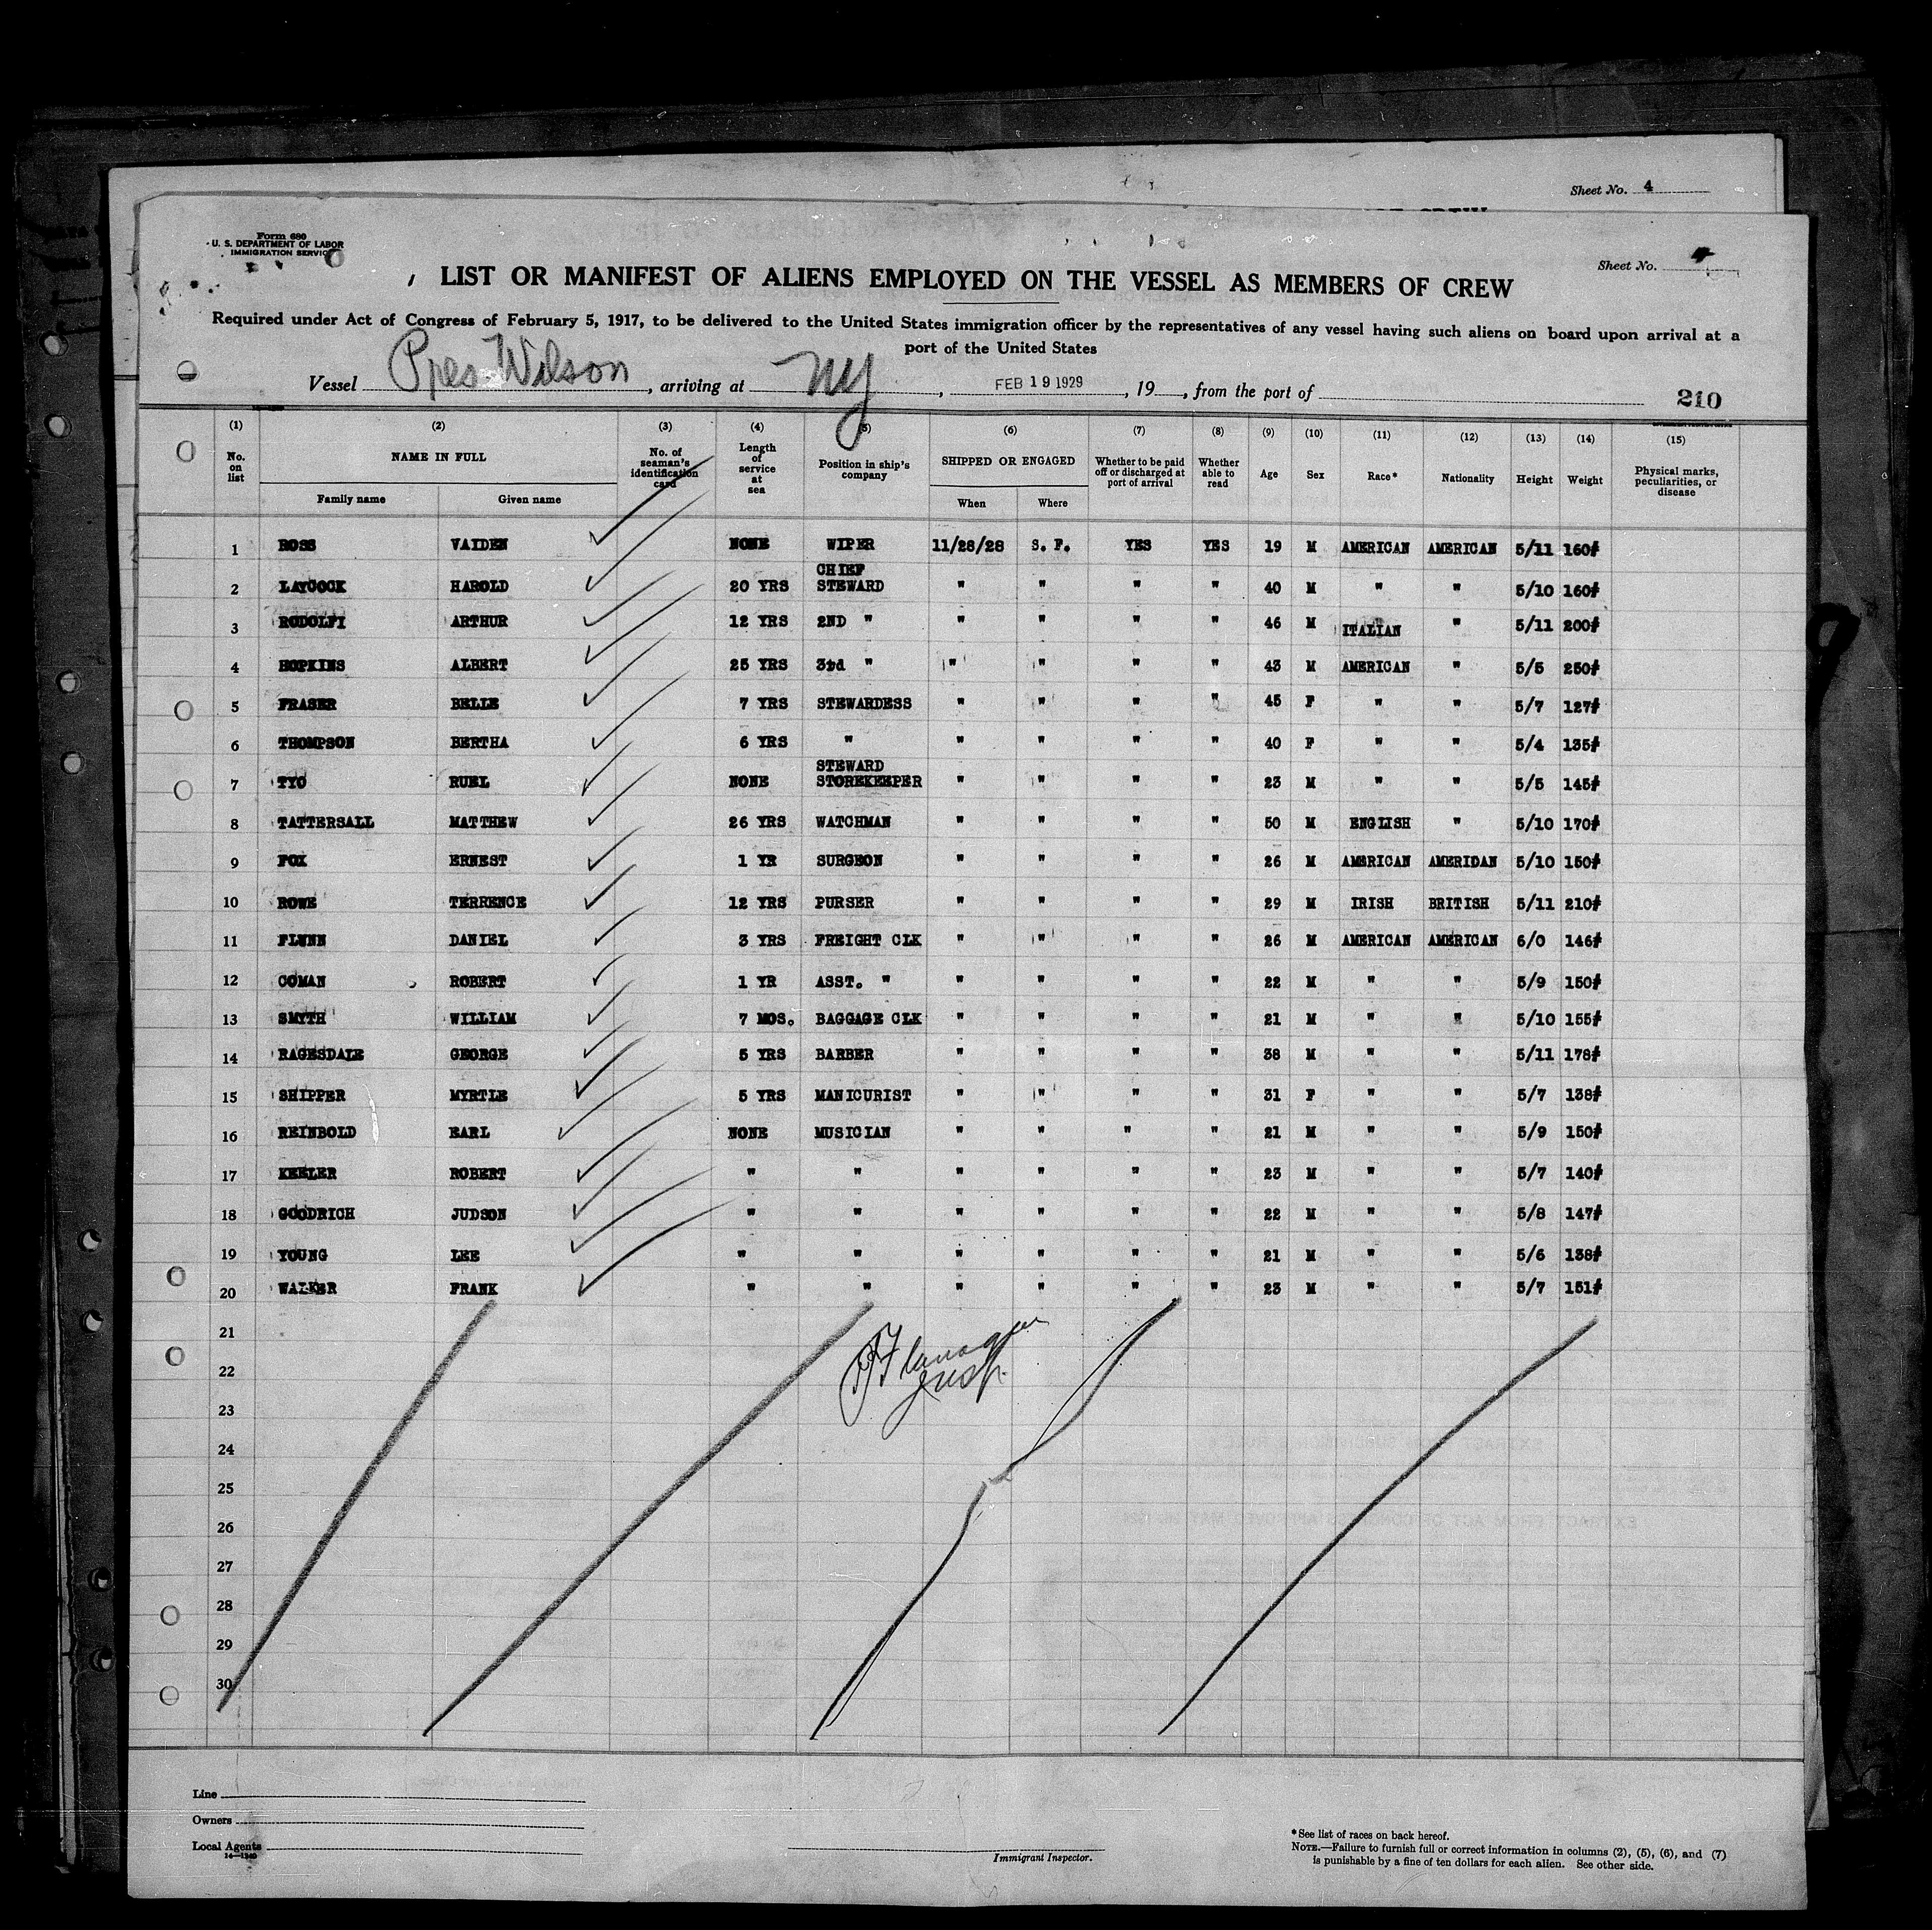 Sheet No. 4
Form 680
U. S. DEPARTMENT OF LABOR
IMMIGRATION SERVICE
Sheet No. 4
LIST OR MANIFEST OF ALIENS EMPLOYED ON THE VESSEL AS MEMBERS OF CREW
Required under Act of Congress of February 5, 1917, to be delivered to the United States immigration officer by the representatives of any vessel having such aliens on board upon arrival at a
port of the United States
Vessel Pres Wilson, arriving at NY, FEB 19 1929, 19, from the port of
210
(1) (2) (3) (4) (5) (6) (7) (8) (9) (10) (11) (12) (13) (14) (15)
No. on list NAME IN FULL No. of seaman's identification card Length of service at sea Position in ship's company SHIPPED OR ENGAGED Whether to be paid off or discharged at port of arrival Whether able to read Age Sex Race* Nationality Height Weight Physical marks, peculiarities, or disease
Family name Given name When Where
1 ROSS VAIDEN NONE WIPER 11/28/28 S. F. YES YES 19 M AMERICAN AMERICAN 5/11 160#
2 LAYCOCK HAROLD 20 YRS CHIEF STEWARD " " " " 40 M " " 5/10 160#
3 RODOLFI ARTHUR 12 YRS 2ND " " " " " 46 M ITALIAN " 5/11 200#
4 HOPKINS ALBERT 25 YRS 3rd " " " " " 43 M AMERICAN " 5/5 250#
5 FRASER BELLE 7 YRS STEWARDESS " " " " 45 F " " 5/7 127#
6 THOMPSON BERTHA 6 YRS " " " " " 40 F " " 5/4 135#
7 TYO RUEL NONE STEWARD STOREKEEPER " " " " 23 M " " 5/5 145#
8 TATTERSALL MATTHEW 26 YRS WATCHMAN " " " " 50 M ENGLISH " 5/10 170#
9 FOX ERNEST 1 YR SURGEON " " " " 26 M AMERICAN AMERIDAN 5/10 150#
10 ROWE TERRENCE 12 YRS PURSER " " " " 29 M IRISH BRITISH 5/11 210#
11 FLYNN DANIEL 3 YRS FREIGHT CLK " " " " 26 M AMERICAN AMERICAN 6/0 146#
12 COMAN ROBERT 1 YR ASST. " " " " " 22 M " " 5/9 150#
13 SMYTH WILLIAM 7 MOS. BAGGAGE CLK " " " " 21 M " " 5/10 155#
14 RAGESDALE GEORGE 5 YRS BARBER " " " " 38 M " " 5/11 178#
15 SHIPPER MYRTLE 5 YRS MANICURIST " " " " 31 F " " 5/7 138#
16 REINBOLD EARL NONE MUSICIAN " " " " 21 M " " 5/9 150#
17 KEELER ROBERT " " " " " " 23 M " " 5/7 140#
18 GOODRICH JUDSON " " " " " " 22 M " " 5/8 147#
19 YOUNG LEE " " " " " " 21 M " " 5/6 138#
20 WALKER FRANK " " " " " " 23 M " " 5/7 151#
21
22
23
24
25
26
27
28
29
30
Line
Owners
Local Agents
14—1240
Immigrant Inspector.
*See list of races on back hereof.
NOTE.—Failure to furnish full or correct information in columns (2), (5), (6), and (7)
is punishable by a fine of ten dollars for each alien. See other side.